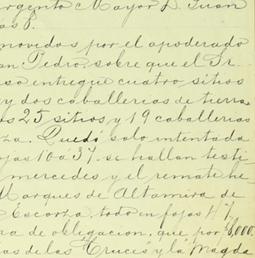 argento Mayor D. Juan
as P.
movidos por el apoderado
an Pedro, sobre que el Sr.
so entregue cuatro sitios
y dos caballerias de tierra
os 25 sitios, y 19 caballerias
za. Quedó solo intentada
ojas 10 a 37. se hallan testi
mercedes y el remate he
Marques de Altamira de
Escorza, todo en fojas 47,
ra de obligacion, que por $8,000.
as de las "Cruces" y la "Magda